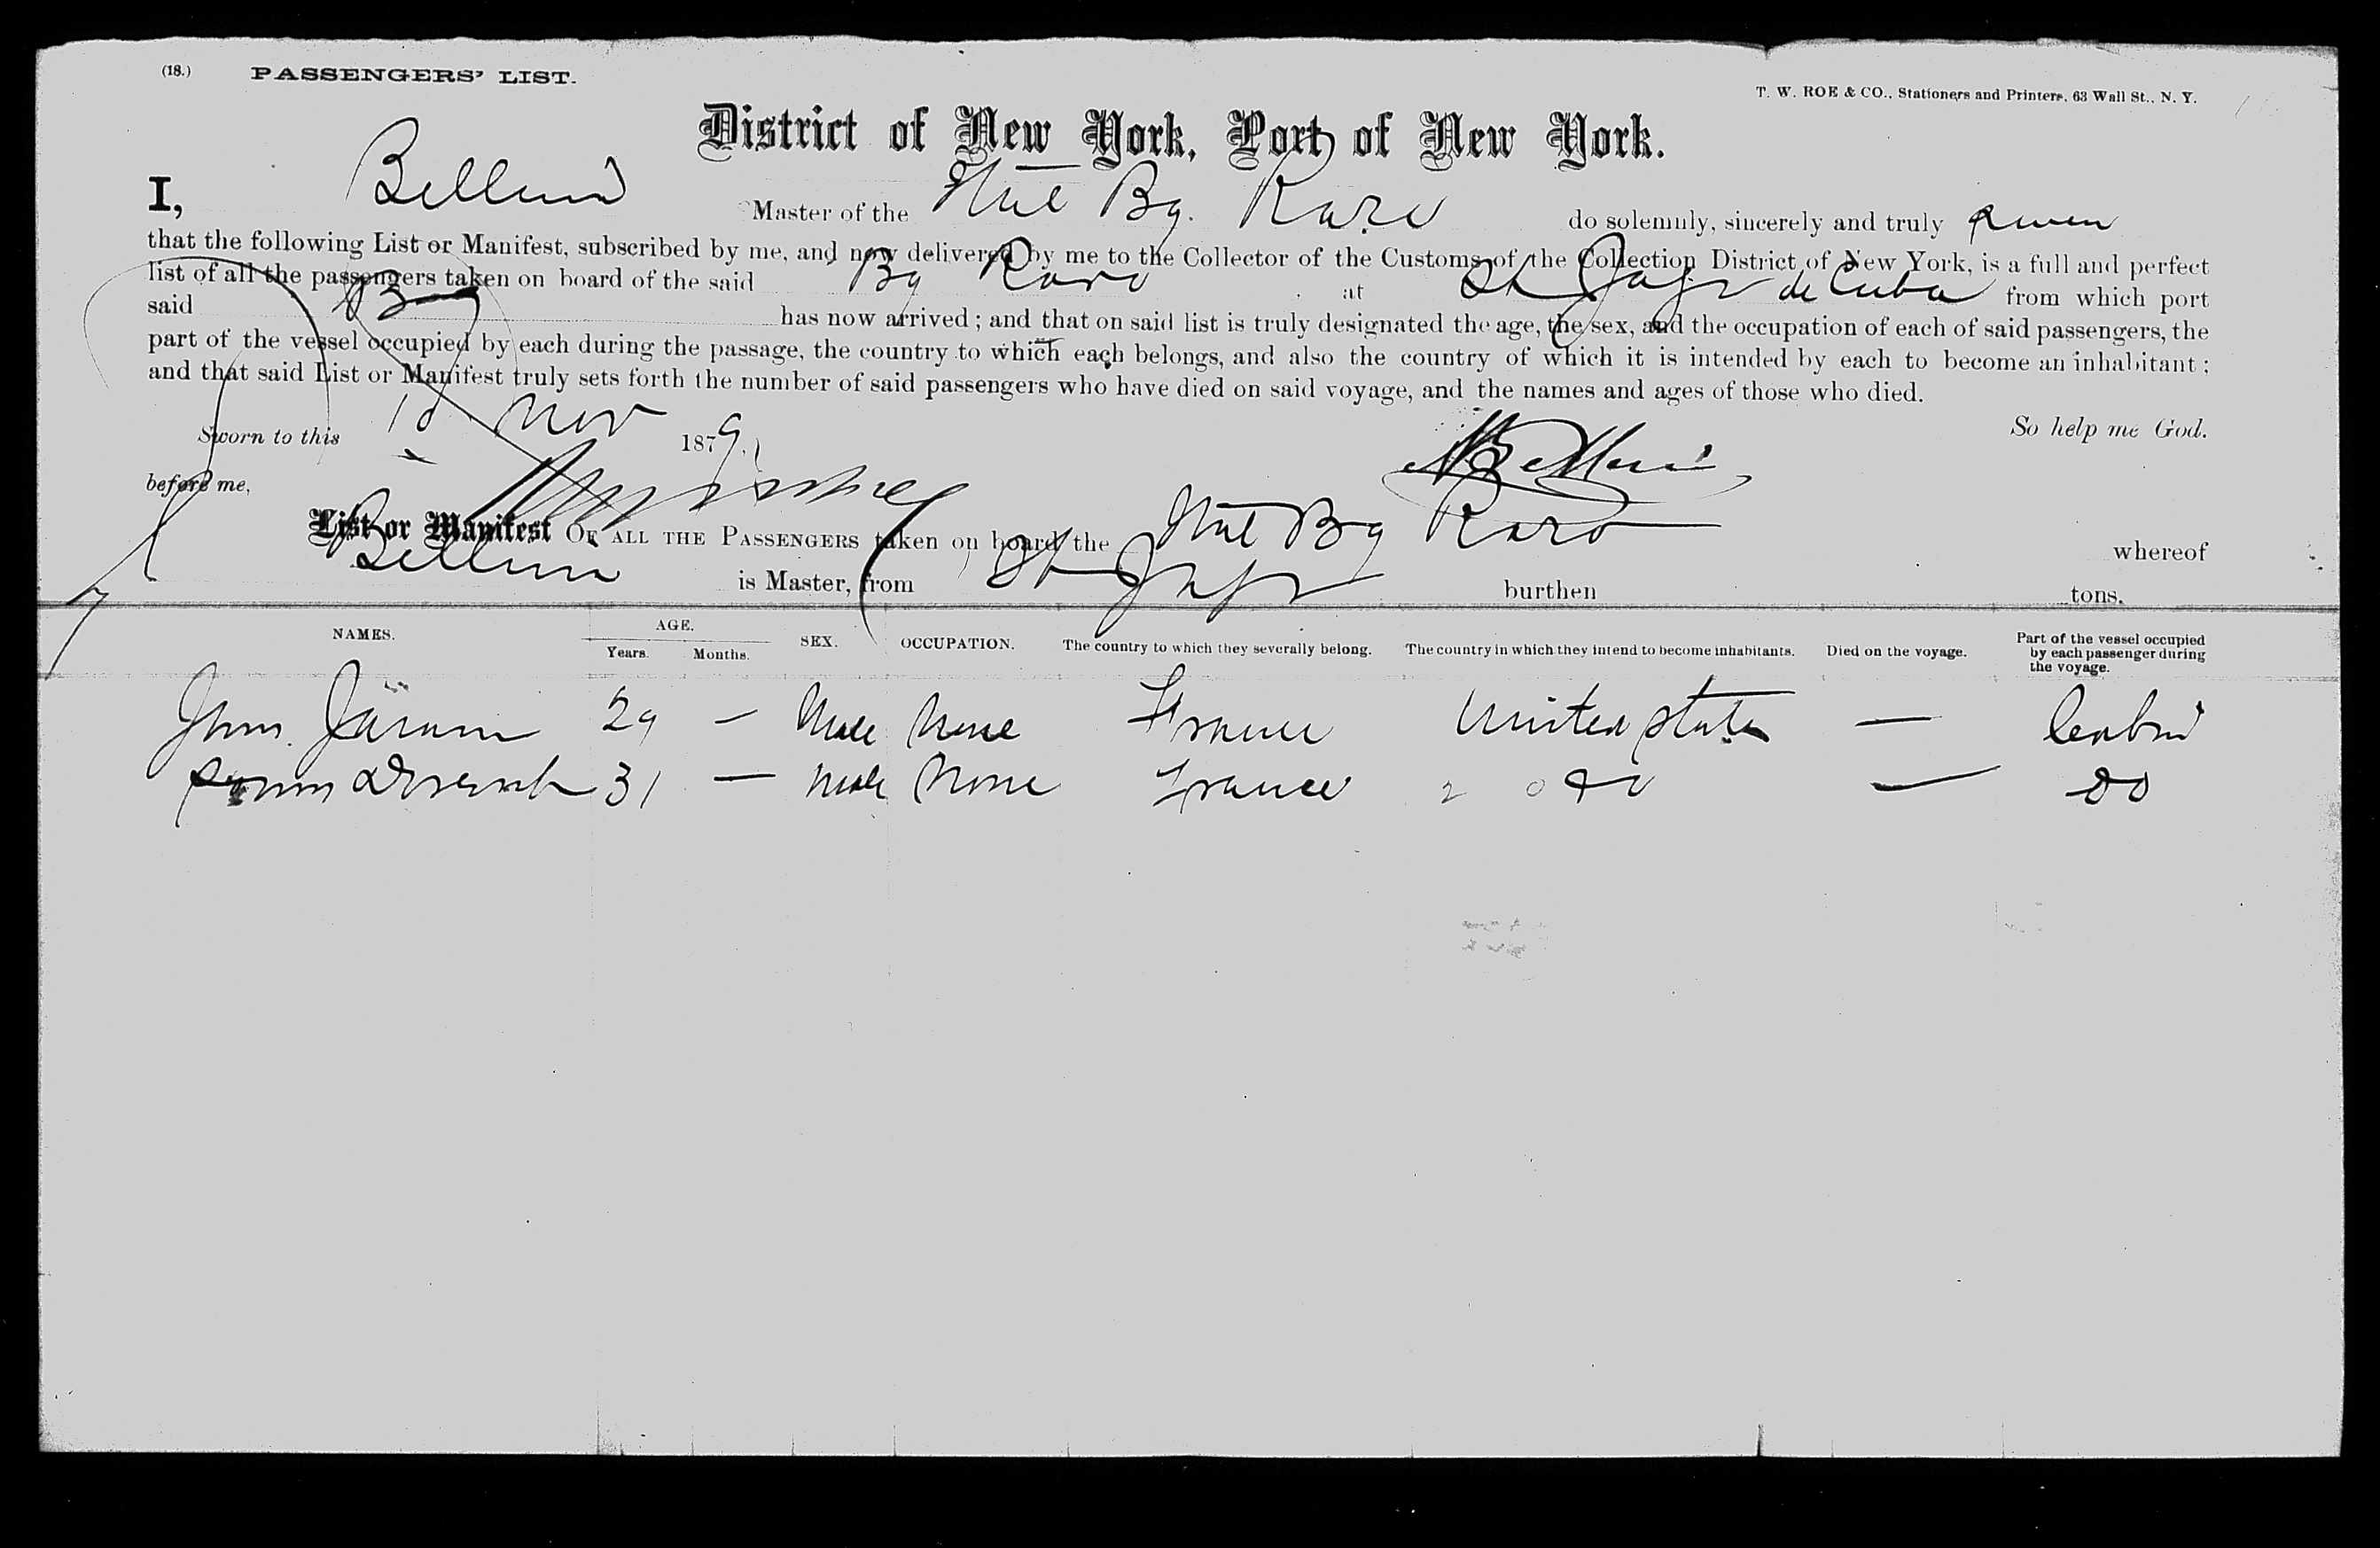 (18.) PASSENGERS' LIST.
T. W. ROE & CO., Stationers and Printers, 63 Wall St., N. Y.
District of New York, Port of New York.
I, Master of the Bg. do solemnly, sincerely and truly swear
that the following List or Manifest, subscribed by me, and now delivered by me to the Collector of the Customs of the Collection District of New York, is a full and perfect
list of all the passengers taken on board of the said Bg at St Jago de Cuba from which port
said has now arrived; and that on said list is truly designated the age, the sex, and the occupation of each of said passengers, the
part of the vessel occupied by each during the passage, the country to which each belongs, and also the country of which it is intended by each to become an inhabitant;
and that said List or Manifest truly sets forth the number of said passengers who have died on said voyage, and the names and ages of those who died.
So help me God.
Sworn to this Nov 1879
before me,
List or Manifest OF ALL THE PASSENGERS taken on board the Bg whereof
is Master, from St Jago burthen tons.
NAMES. AGE. Years. Months. SEX. OCCUPATION. The country to which they severally belong. The country in which they intend to become inhabitants. Died on the voyage. Part of the vessel occupied by each passenger during the voyage.
29 — Male None France United States — Cabin
31 — Male None France — Do